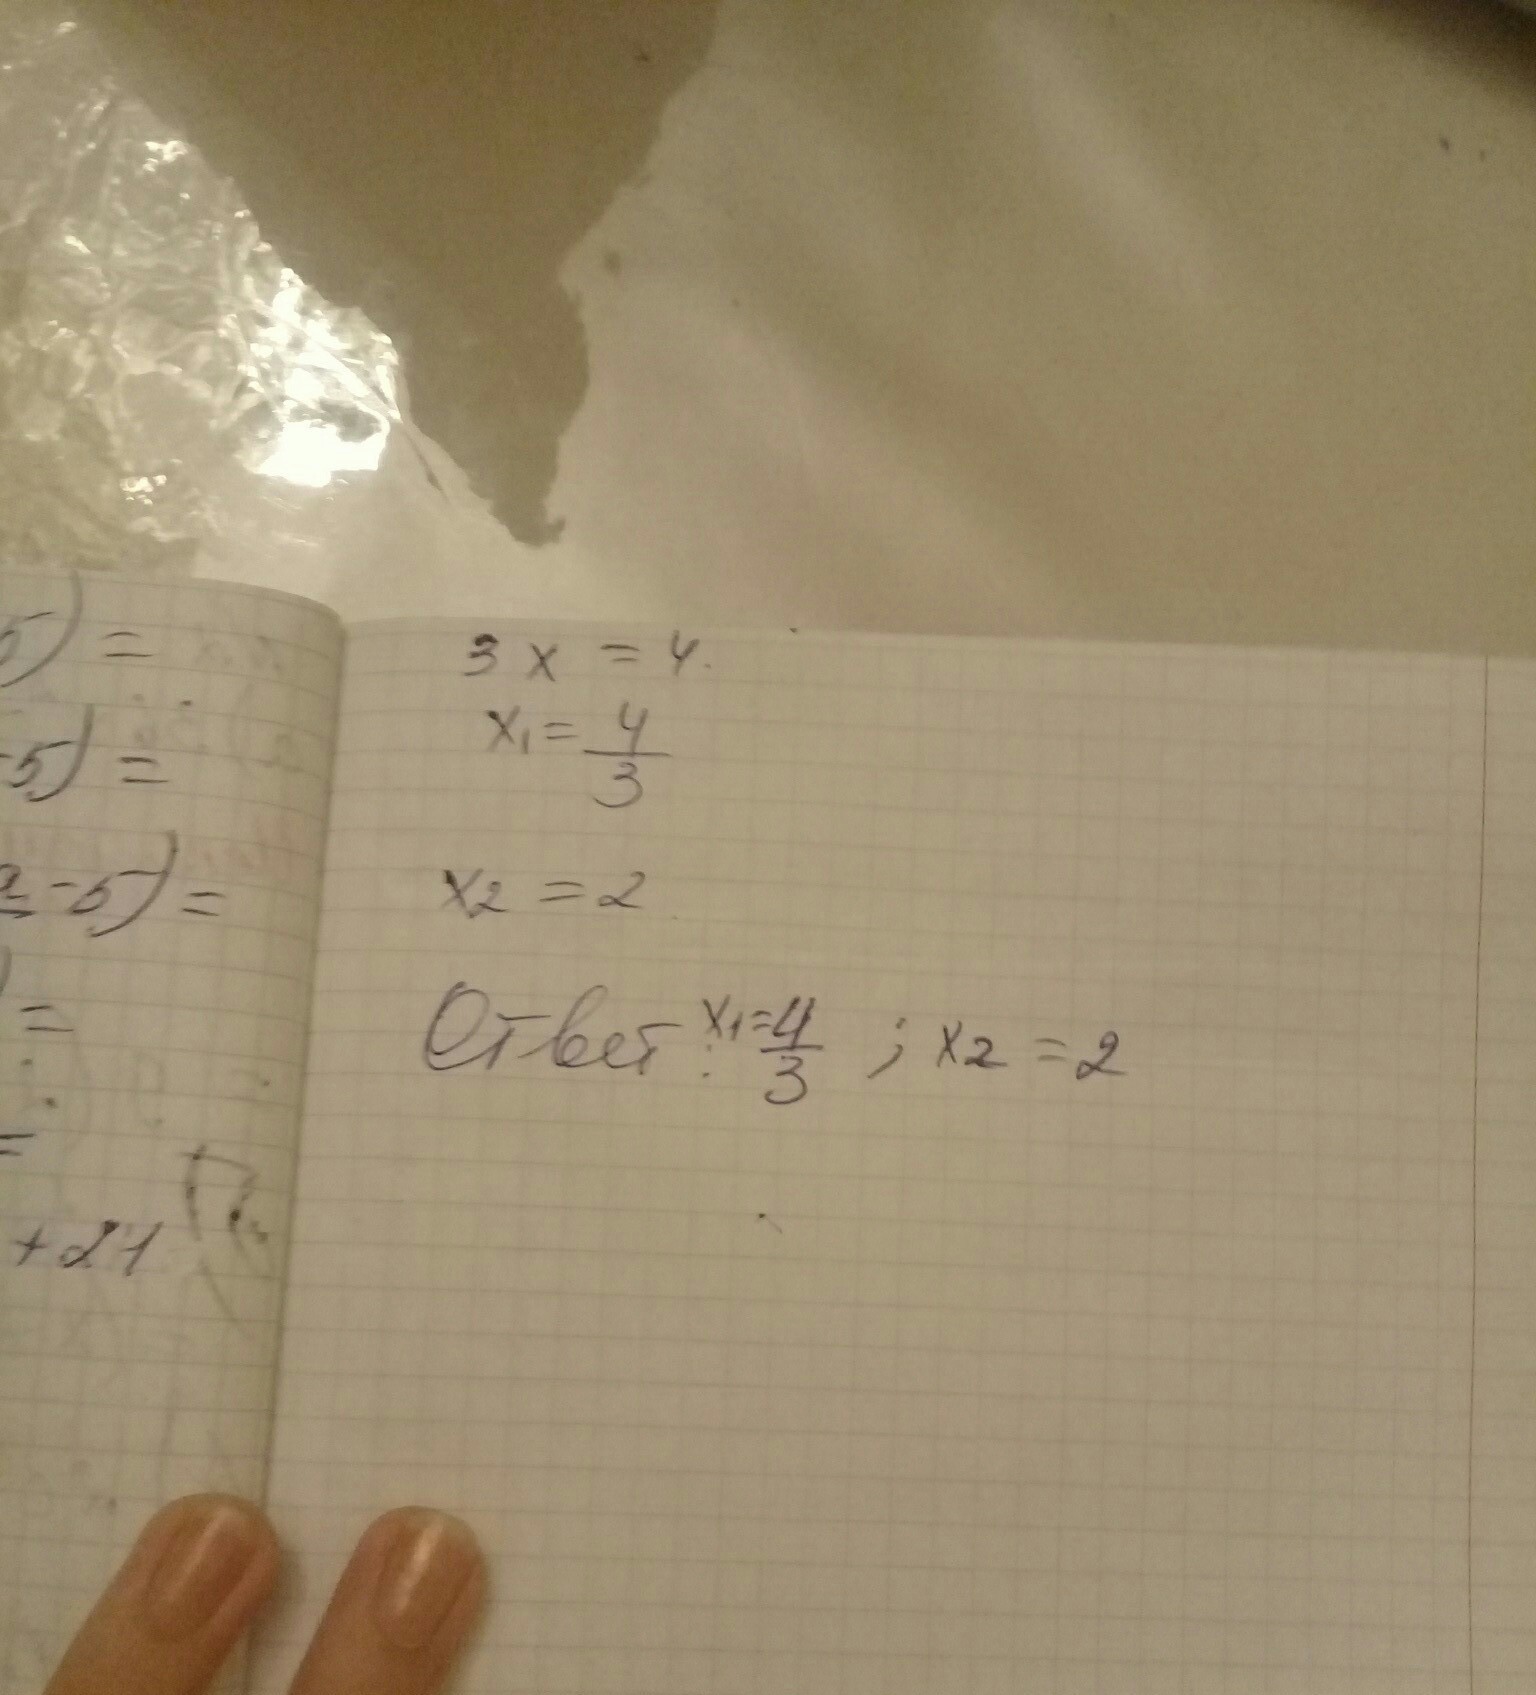 5) =
-5) =
a - 5) =
) =
=
+ 21
3x = 4.
x₁ = 4/3
x₂ = 2
Ответ: x₁ = 4/3 ; x₂ = 2